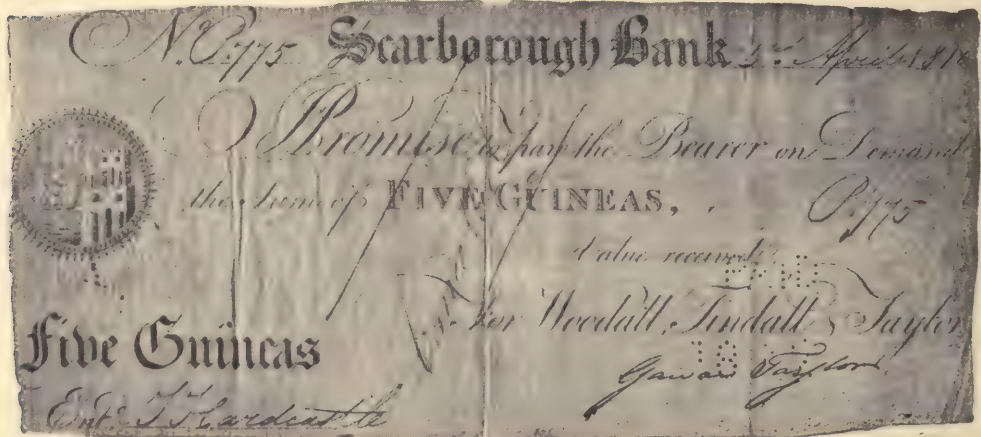 No. C.775 Scarborough Bank April 181
I Promise to pay the Bearer on Demand
the Sum of FIVE GUINEAS, C.775
Value received
For Woodall, Tindall & Taylor
Five Guineas
Taylor
Entd. Hardcastle